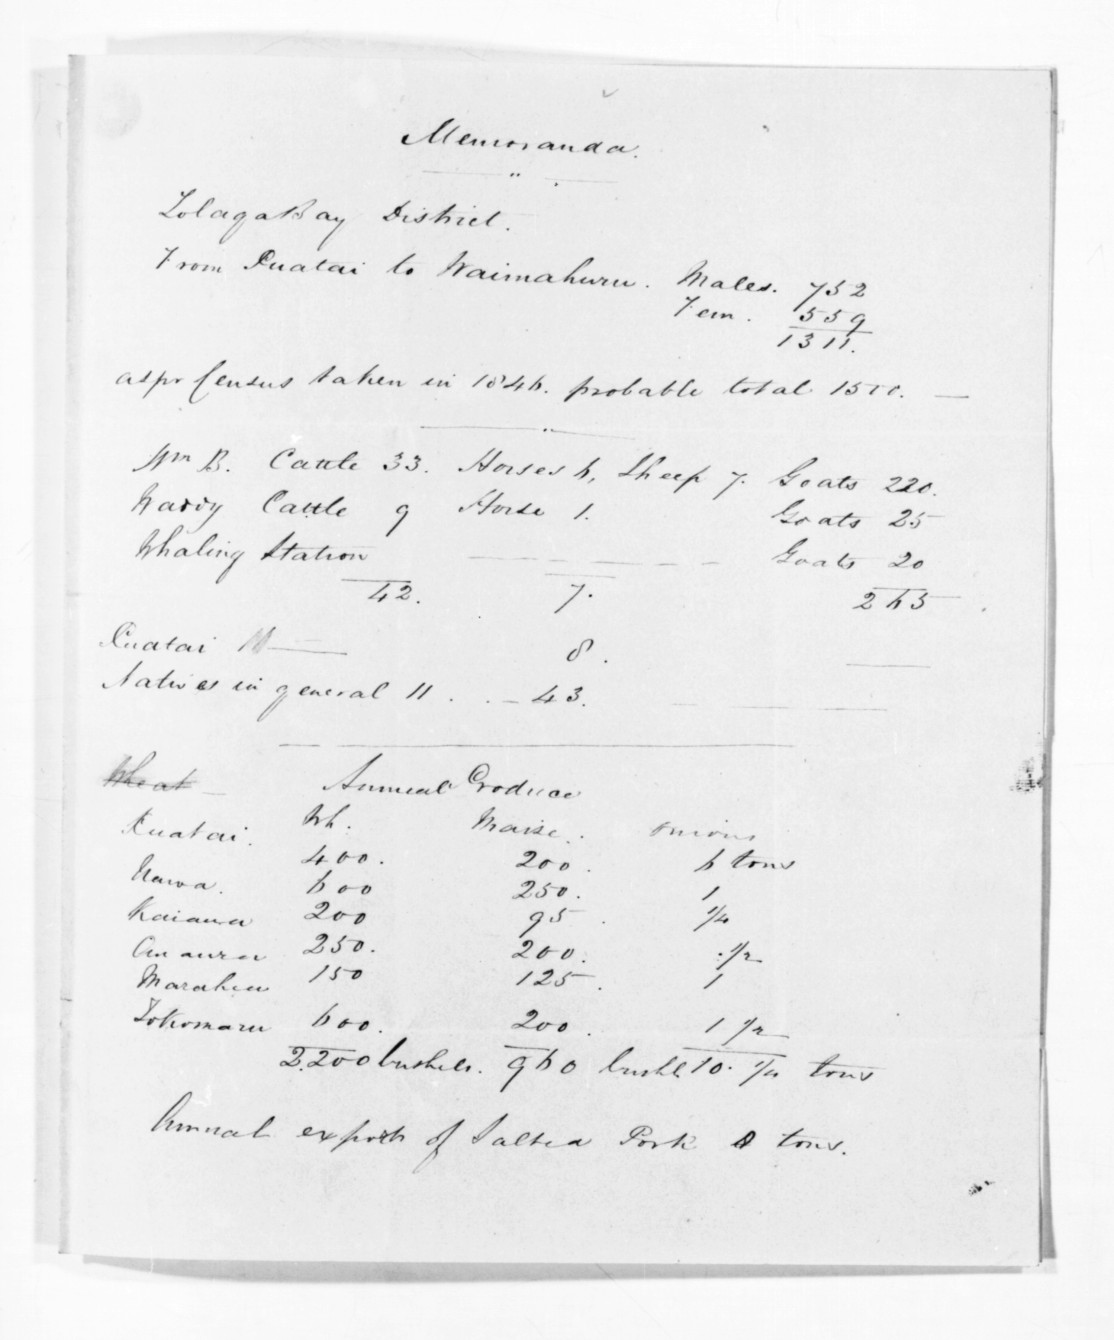 Memoranda.
Tolaga Bay District.
From Puatai to Waimahuru. Males. 752
Fem. 559
1311.
as pr Census taken in 1846. probable total 1500. —
Wm B. Cattle 33. Horses 6, Sheep 7. Goats 220.
Waddy Cattle 9 Horse 1. Goats 25
Whaling Station — — — — Goats 20
42. 7. 265
Puatai — 8.
Natives in general 11 . . — 43.
Wheat — Annual Produce
Wh. Maize. Onions
Puatai. 400. 200. 6 tons
Nawa. 600 250. 1
Kaiawa 200 95. 1/4
Anaura 250. 200. 1/2
Marahea 150 125. 1
Tokomaru 600. 200. 1 1/2
2.200 bushels. 960 bushl 10. 1/4 tons
Annual export of Salted Pork 8 tons.